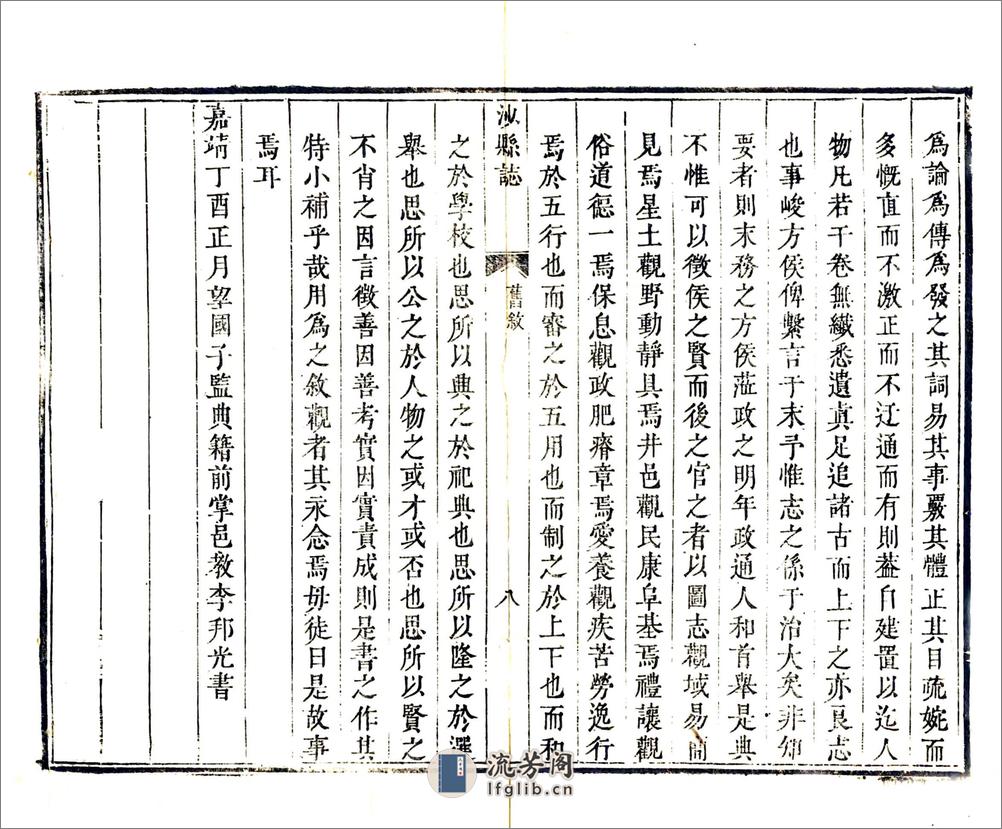 爲論爲傳爲發之其詞易其事覈其體正其目疏婉而
多慨直而不激正而不迂通而有則葢自建置以迄人
物凡若干卷無纖悉遺眞足追諸古而上下之亦良志
也事峻方侯俾繫言于末予惟志之係于治大矣非知
要者則末務之方侯蒞政之明年政通人和首舉是典
不惟可以徵侯之賢而後之官之者以圖志觀域易簡
見焉星土觀野動靜具焉井邑觀民康阜基焉禮讓觀
俗道德一焉保息觀政肥瘠章焉愛養觀疾苦勞逸行
焉於五行也而審之於五用也而制之於上下也而和
沙縣誌 舊敘 八
之於學校也思所以典之於祀典也思所以隆之於選
舉也思所以公之於人物之或才或否也思所以賢之
不肖之因言徵善因善考實因實責成則是書之作其
特小補乎哉用爲之敘觀者其永念焉毋徒曰是故事
焉耳
嘉靖丁酉正月望國子監典籍前掌邑教李邦光書
流芳阁
lfglib.cn